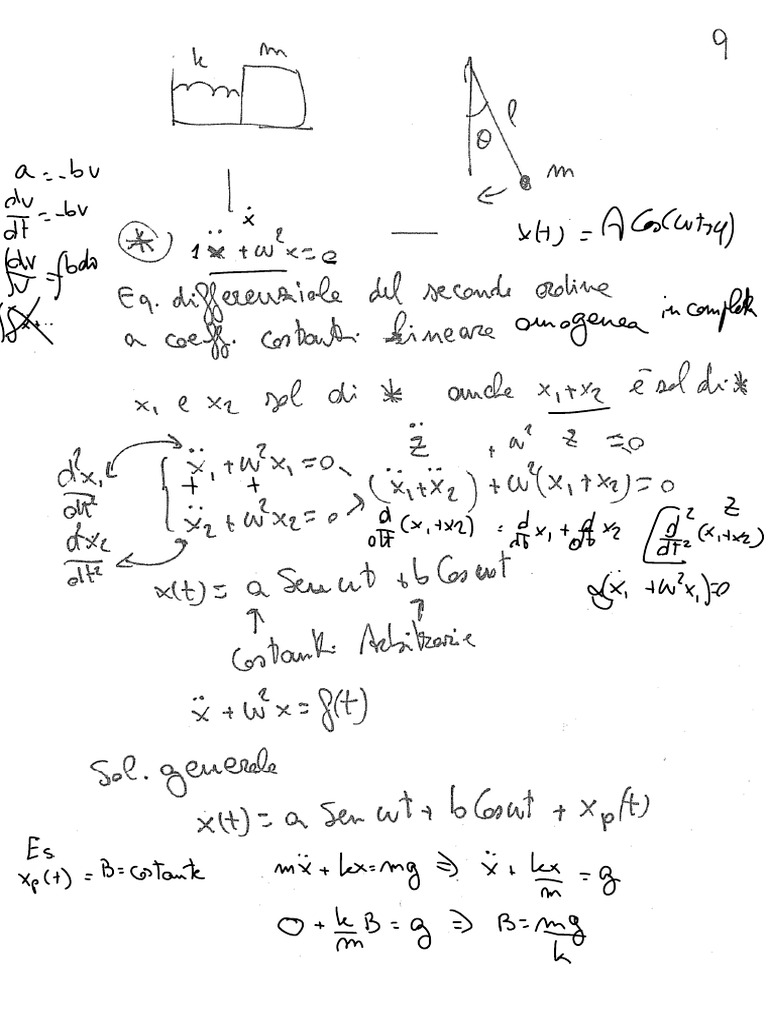 9
k m
θ l m
a = -bv
dv/dt = -bv
∫dv/v = ∫bdv
ẍ
✳) 1ẍ + ω²x = 0 — x(t) = A Cos(ωt+φ)
Eq. differenziale del secondo ordine
a coeff. costanti lineare omogenea incompleta
x₁ e x₂ sol di ✳ anche x₁+x₂ è sol di ✳
z̈ + ω² z = 0
d²x₁/dt² ẍ₁ + ω²x₁ = 0 (ẍ₁+ẍ₂) + ω²(x₁+x₂) = 0
+ +
d²x₂/dt² ẍ₂ + ω²x₂ = 0 d/dt (x₁+x₂) = d/dt x₁ + d/dt x₂ d²/dt² (x₁+x₂) z
x(t) = a Sen ωt + b Cos ωt a(ẍ₁ + ω²x₁) = 0
↑ ↑
Costanti Arbitrarie
ẍ + ω²x = f(t)
Sol. generale
x(t) = a Sen ωt + b Cos ωt + xₚ(t)
Es
xₚ(t) = B = costante mẍ + kx = mg ⇒ ẍ + kx/m = g
0 + k/m B = g ⇒ B = mg/k